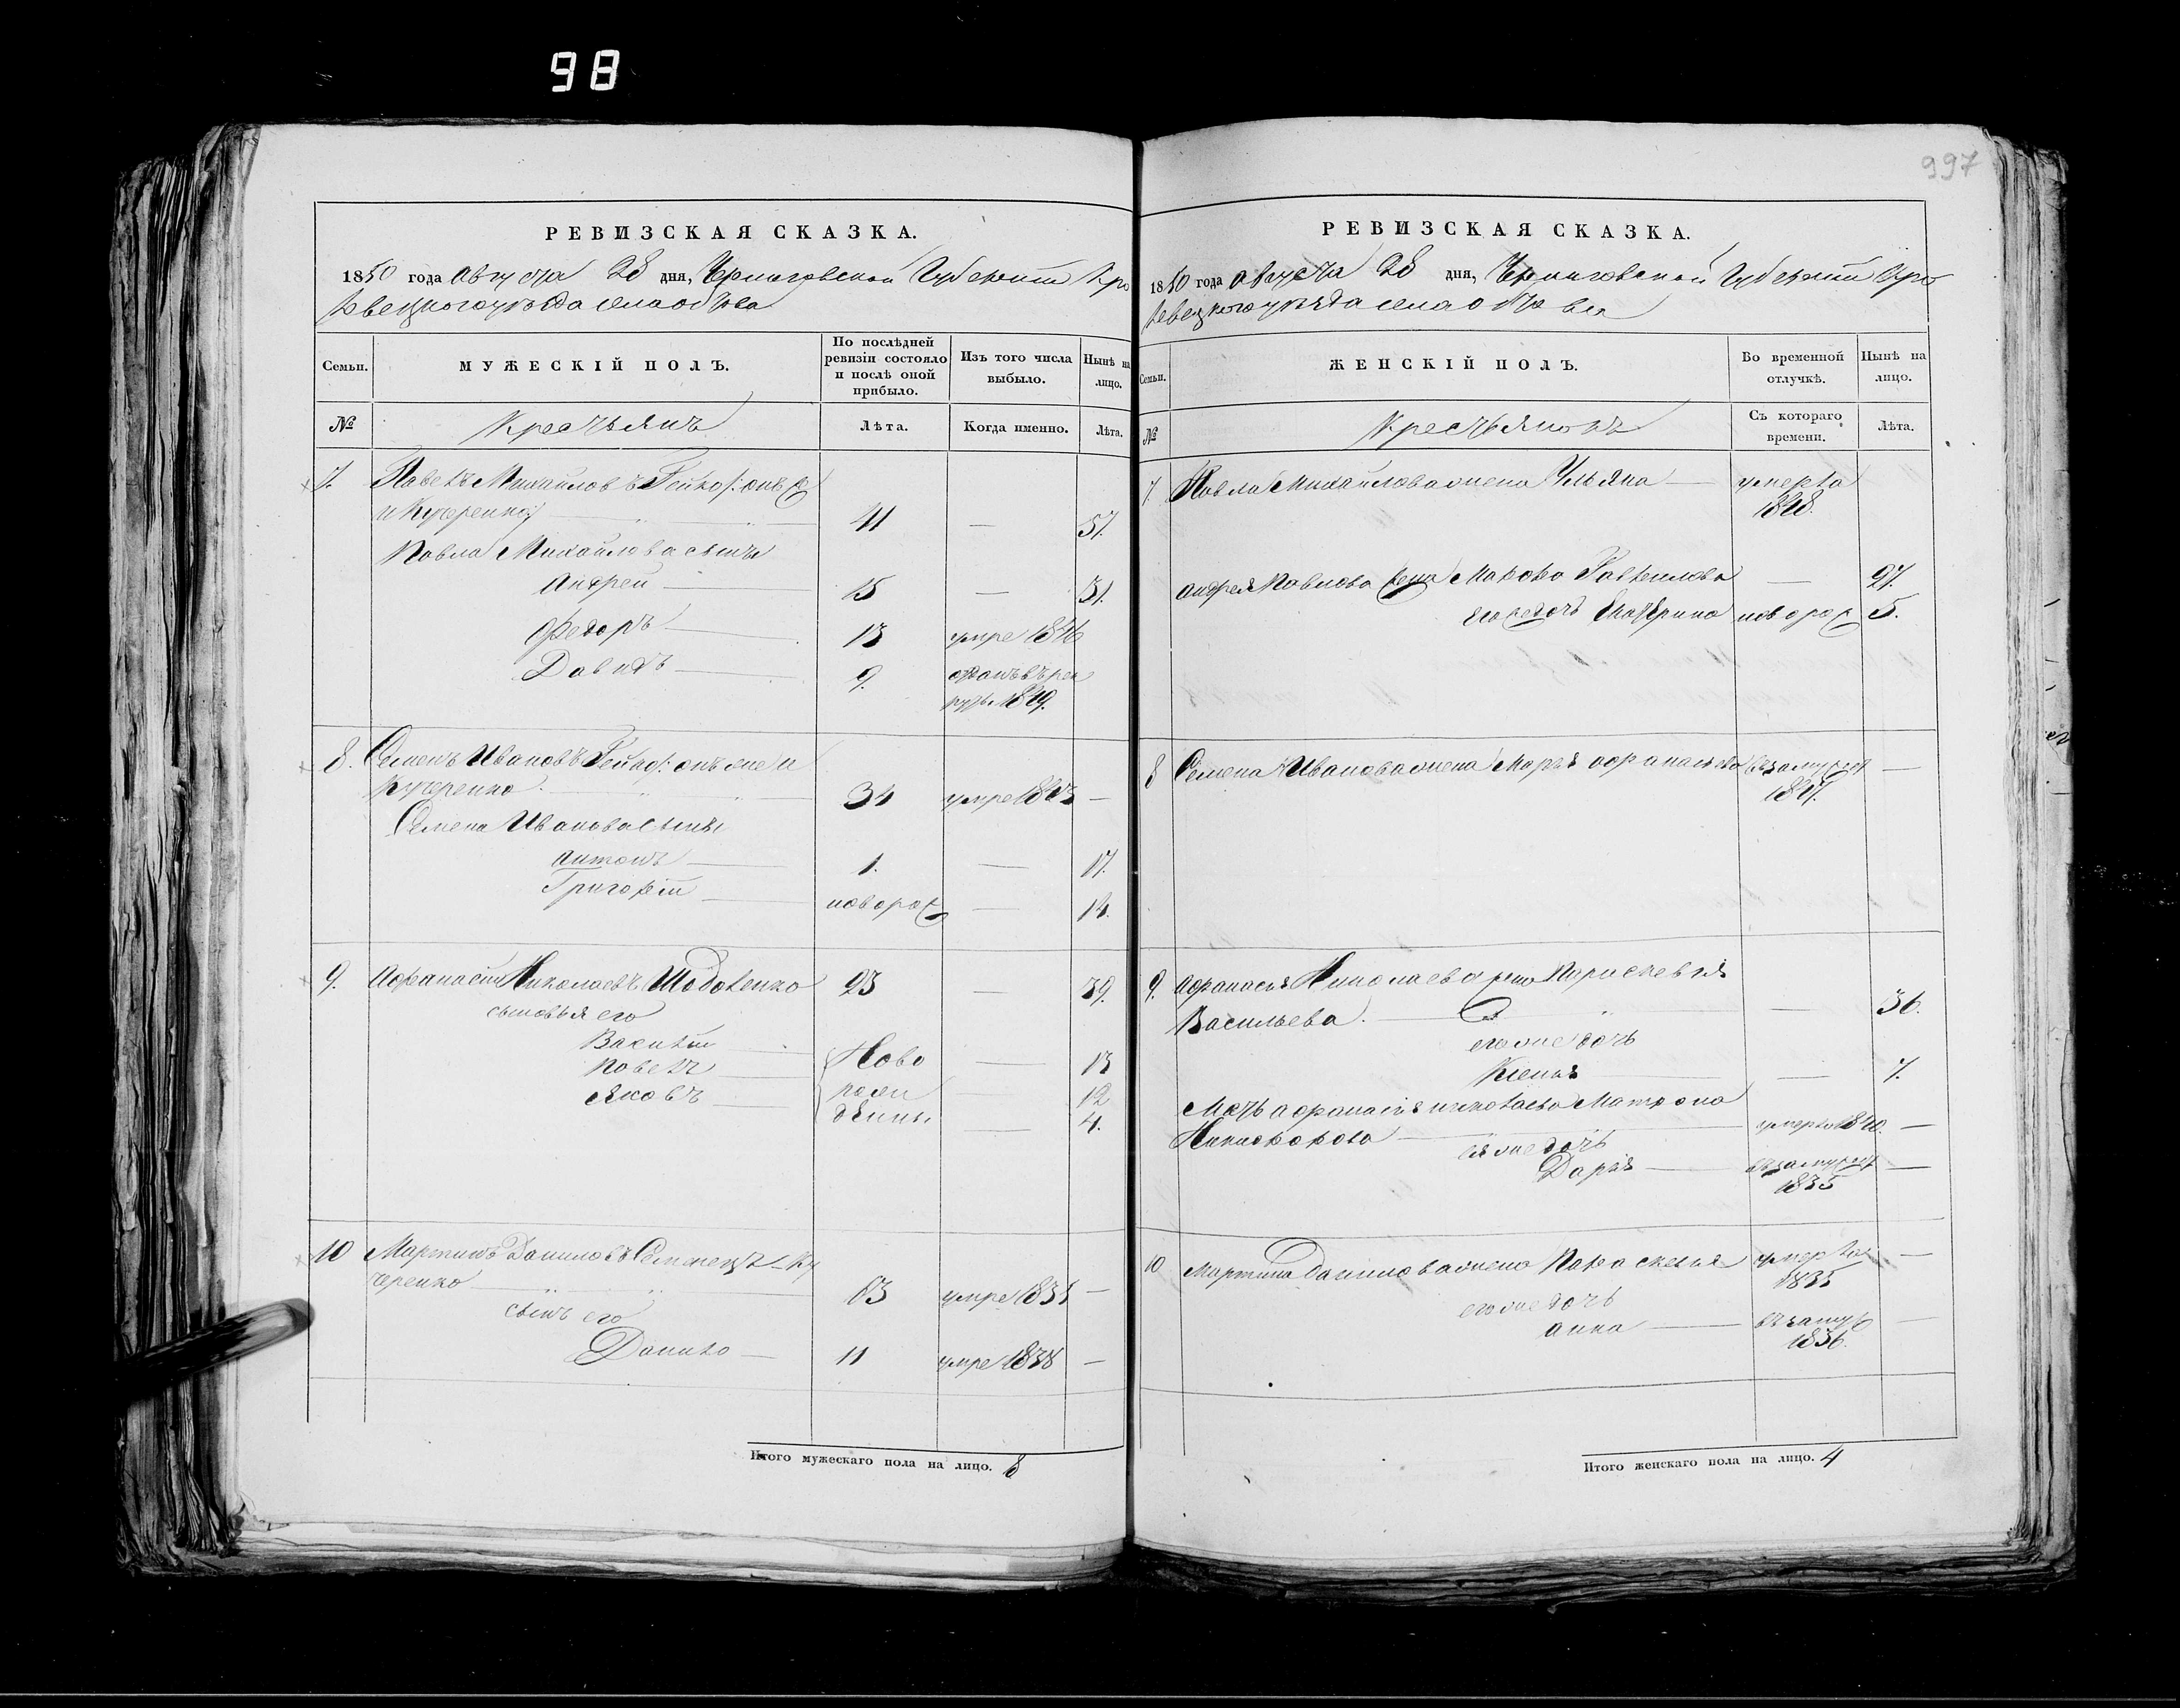 98
997
РЕВИЗСКАЯ СКАЗКА.
1850 года августа 28 дня, Черниговской Губернии Кро
левецкого уезда села
Семьи. МУЖЕСКІЙ ПОЛЪ. По послѣдней ревизіи состояло и послѣ оной прибыло. Изъ того числа выбыло. Нынѣ на лицо.
№ Крестьянъ Лѣта. Когда именно. Лѣта.
7. Павелъ Михайловъ Гейко /: онъ ж
и Кучеренко :/ 41 — 57.
Павла Михайлова сыны
Андрей 15 — 31.
Федоръ 13 умре 1846
Давидъ 9. отданъ въ рек
руты 1849.
8. Семенъ Ивановъ Гейко /: онъ же и
Кучеренко 34 умре 1843 —
Семена Иванова сыны
Антонъ 1. — 17.
Григорій новорож — 14.
9. Афанасій Николаевъ 23 — 39.
сыновья его
Василій Ново — 13
Павелъ рож 12
Яковъ денны — 4.
10 Мартинъ Даниловъ Семенецъ Ку
черенко 63 умре 1835 —
сынъ его
Данило 11 умре 1838 —
Итого мужескаго пола на лицо. 8
РЕВИЗСКАЯ СКАЗКА.
1850 года августа 28 дня, Черниговской Губернии Кро
левецкого уезда села
Семьи. ЖЕНСКІЙ ПОЛЪ. Во временной отлучкѣ. Нынѣ на лицо.
№ Крестьянокъ Съ котораго времени. Лѣта.
7. Павла Михайлова жена Ульяна умерла
1848.
Андрея Павлова жена Гаврилова — 27.
его же дочь Екатерина новорож 5.
8 Семена Иванова жена Марья Афанасьева въ замуж
1847. —
9. Афанасія Николаева жена Парасковія
Васильева. — 36.
его же дочь
— 7.
Мать Афанасія Николаева Матрона
Никифорова умерла 1840. —
ея же дочь
Дарья въ замуж —
1835
10 Мартина Данилова жена Параскевія умерла —
1835
его же дочь
Анна въ замуж —
1836.
Итого женскаго пола на лицо. 4